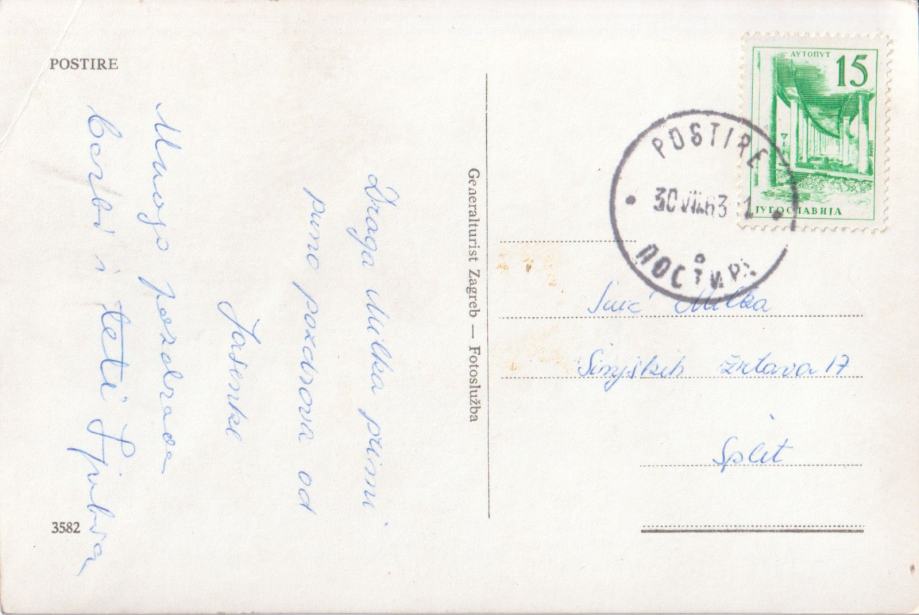 POSTIRE
Draga Milka primi
puno pozdrava od
Jasenke
Mnogo pozdrava
barbi i teti Ljubica
3582
Generalturist Zagreb — Fotoslužba
АУТОПУТ
15
ЈУГОСЛАВИЈА
POSTIRE
30 VII 63 1
a
ПОСТИРЕ
Milka
Sinjskih žrtava 17
Split